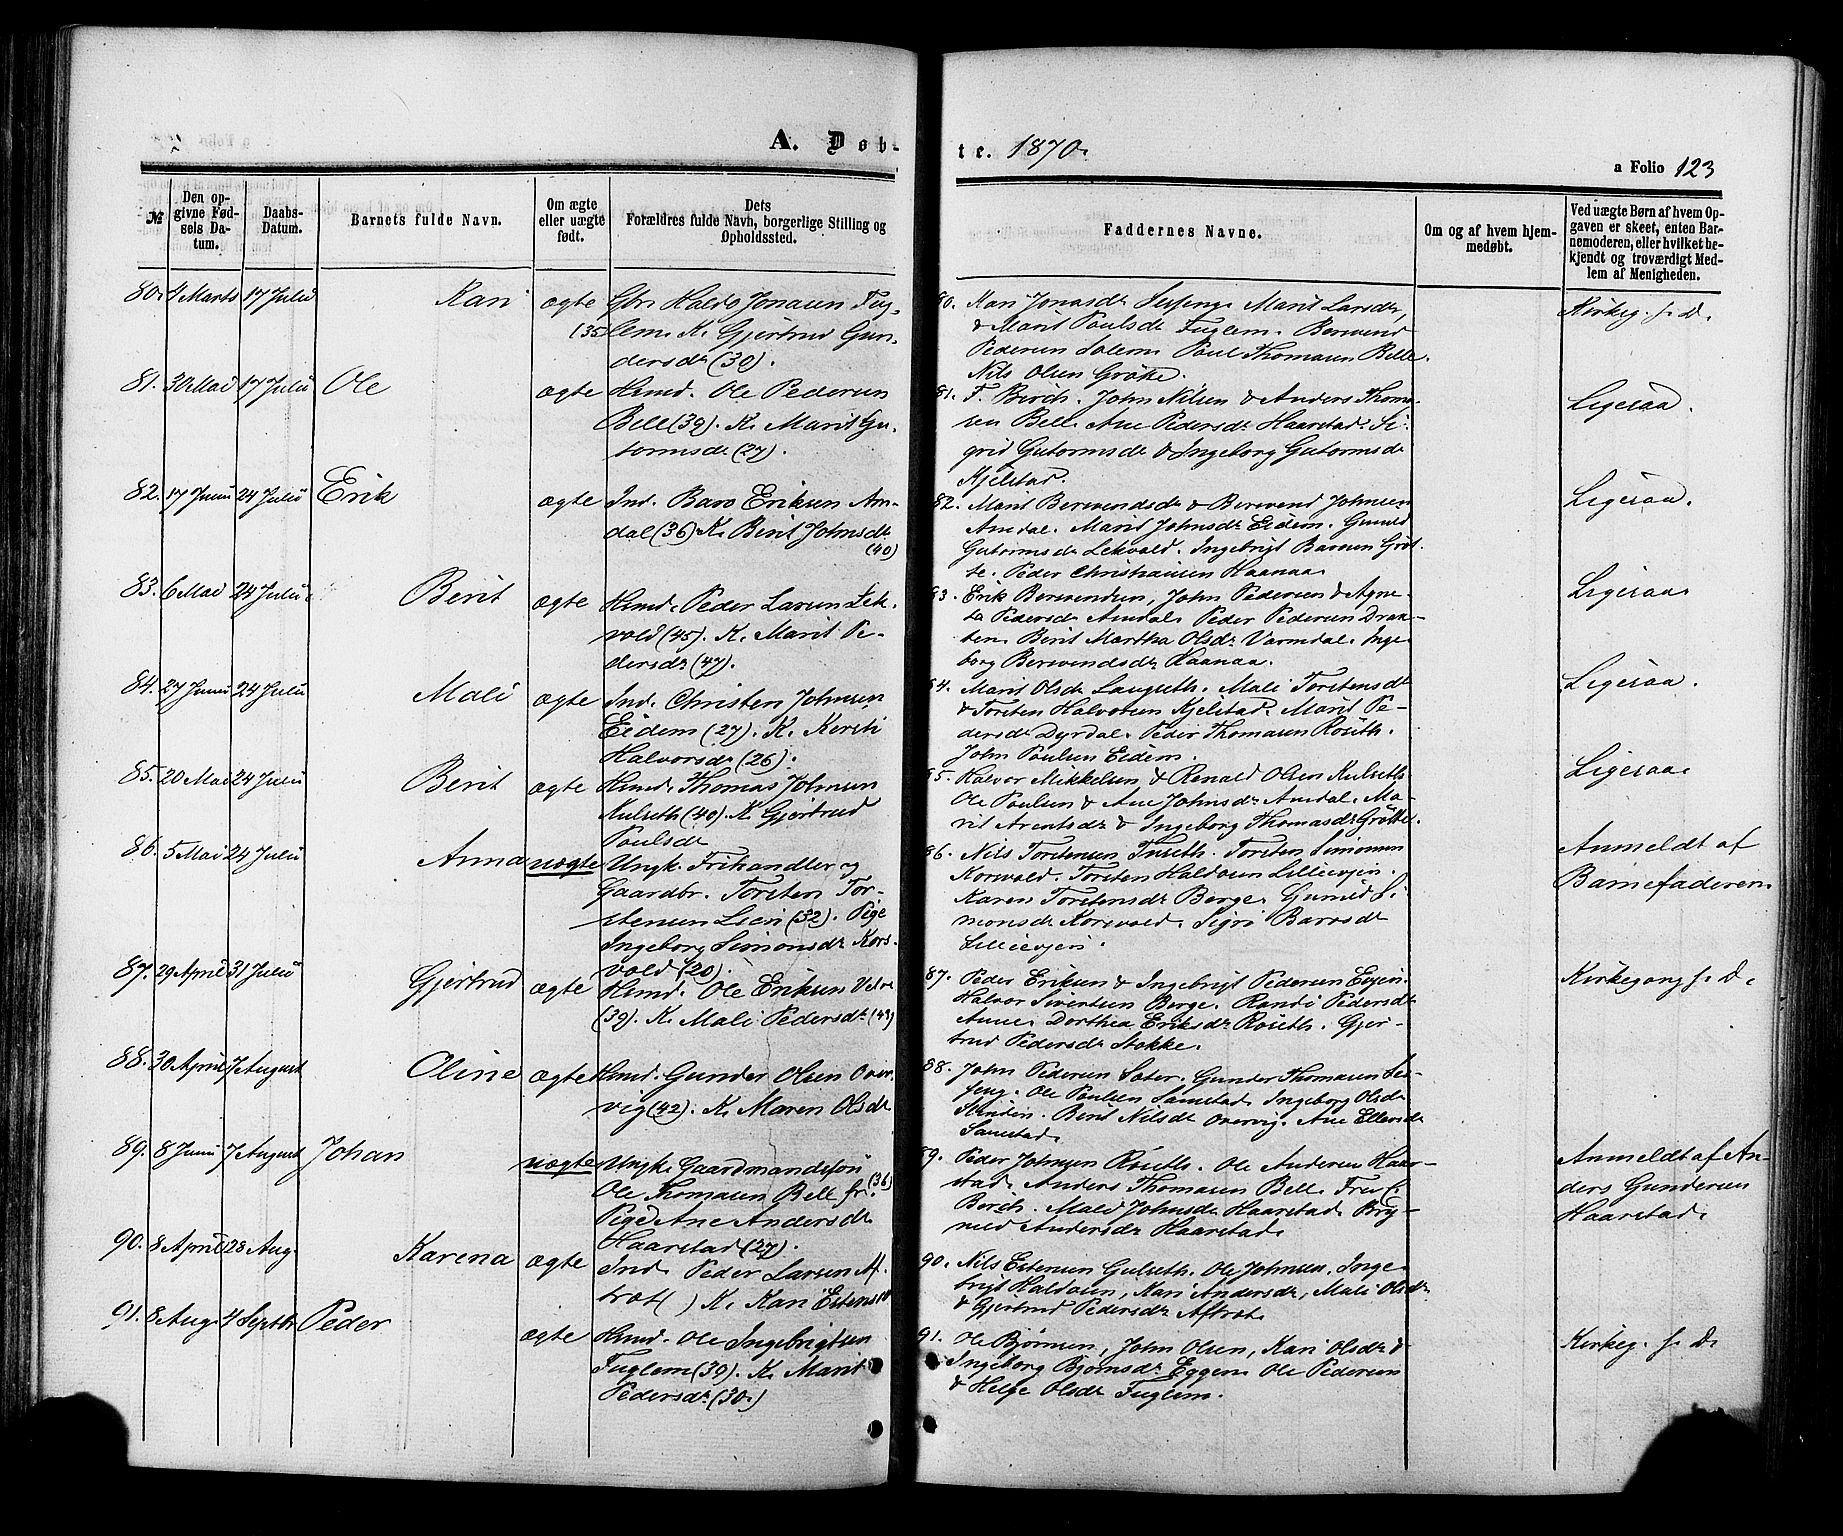 A. Døb-
te. 1870.
a Folio 123
№
Den op-
givne Fød-
sels Da-
tum.
Daabs-
Datum.
Barnets fulde Navn.
Om ægte
eller uægte
født.
Dets
Forældres fulde Navn, borgerlige Stilling og
Opholdssted.
Faddernes Navne.
Om og af hvem hjem-
medøbt.
Ved uægte Børn af hvem Op-
gaven er skeet, enten Bar-
nemoderen, eller hvilket be-
kjendt og troværdigt Med-
lem af Menigheden.
80. 4 Marts 17 Juli Kari ægte Gbr. Haldo Jonasen Fug-
(35) lem. K. Gjertrud Gun-
dersdr (30).
80. Kari Jonasdr Sesseng. Marit Larsdr,
& Marit Paulsdr Fuglem. Berevend
Pedersen Solem. Paul Thomasen Bell.
Nils Olsen Grøtte.
Kirkeg. f. D.
81. 30 Mai 17 Juli Ole ægte Husmd. Ole Pedersen
Bell (39). K. Marit Gu-
tormsdr (27).
81. F. Birch. John Nilsen & Anders Thoma-
sen Bell. Ane Pedersdr Haarstad. Si-
grid Gutormsdr & Ingeborg Gutormsdr
Kjelstad.
Ligesaa.
82. 17 Juni 24 Juli Erik ægte Ind. Baro Eriksen Am-
dal (36) K. Berit Johnsdr
(40)
82. Marit Berevendsdr & Berevend Johnsen
Amdal. Marit Johnsdr Eidem. Gunild
Gutormsdr Lekvold. Ingebrigt Barosen Grøt-
te. Peder Christiansen Haanaa.
Ligesaa.
83. 6 Mai 24 Juli Berit ægte Husmd. Peder Larsen Lek-
vold (45). K. Marit Pe-
dersdr (47).
83. Erik Berevendsen, John Pedersen & Agne-
ta Pedersdr Amdal. Peder Pedersen Drax-
ten. Berit Martha Olsdr Varmdal. Inge-
borg Berevendsdr Haanaa.
Ligesaa
84. 27 Juni 24 Juli Mali ægte Ind. Christen Johnsen
Eidem (27). K. Kersti
Halvorsdr (26).
84. Marit Olsdr Langseth. Mali Torstensdr
& Torsten Halvorsen Kjelstad. Marit Pe-
dersdr Dyrdal. Peder Thomasen Roseth.
John Paulsen Eidem.
Ligesaa.
85. 20 Mai 24 Juli Berit ægte Husmd. Thomas Johnsen
Kulseth (40). K. Gjertrud
Paulsdr
85. Halvor Mikkelsen & Renald Olsen Kulseth
Ole Paulsen & Ane Johnsdr Amdal. Ma-
rit Arentsdr & Ingeborg Thomasdr Grøtte.
Ligesaa
86. 5 Mai 24 Juli Anna uægte Ungk. Frihandler og
Gaardbr. Torsten Tor-
stensen Lien (32). Pige
Ingeborg Simonsdr Kors-
vold (20).
86. Nils Torstensen Tuseth. Torsten Simonsen
Korsvold. Torsten Haldosen Lillievjen.
Karen Torstensdr Berge. Gunild Si-
monsdr Korsvold. Sigri Barosdr
Lillievjen.
Anmeldt af
Barnefaderen.
87. 29 April 31 Juli Gjertrud ægte Husmd. Ole Eriksen Velve
(39). K. Mali Pedersdr (43)
87. Peder Eriksen & Ingebrigt Pedersen Evjen.
Halvor Sivertsen Berge. Randi Pedersdr
Aune. Dorthea Eriksdr Roseth. Gjer-
trud Pedersdr Stokke.
Kirkegang f. D.
88. 30 April 7 August Oline ægte Husmd. Gunder Olsen Over-
vig (42). K. Maren Olsdr
88. John Pedersen Sater. Gunder Thomasen Ses-
seng. Ole Paulsen Samstad. Ingeborg Olsdr
Berit Nilsdr Overvig. Ane Ellersdr
Samstad.
89. 8 Juni 7 August Johan uægte Ungk. Gaardmandssøn
Ole Thomasen Bell fr. (36)
Pige Ane Andersdr
Haarstad (27).
89. Peder Johnsen Roseth. Ole Andersen Haar-
stad. Anders Thomasen Bell. Fru C.
Birch. Malo Johnsdr Haarstad. Bry-
nild Andersdr Haarstad.
Anmeldt af An-
ders Gundersen
Haarstad.
90. 8 April 28 Aug. Karena ægte Ind. Peder Larsen Af-
trøt( ) K. Kari Estensdr
90. Nils Estensen Gulseth. Ole Johnsen. Inge-
brigt Haldosen, Kari Andersdr, Mali Olsdr
& Gjertrud Pedersdr Aftrøt.
91. 8 Aug. 4 Septbr Peder ægte Husmd. Ole Ingebrigtsen
Fuglem (39). K. Marit
Pedersdr. (30.)
91. Ole Bjørnsen, John Olsen, Kari Olsdr &
Ingeborg Bjørnsdr Eggen. Ole Pedersen
& Helge Olsdr Fuglem.
Kirkeg. f. D.